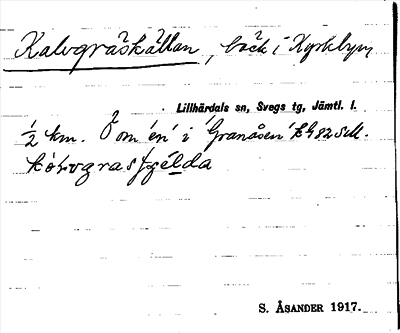 Kalvgräskällan, bäck i Kyrkbyn
Lillhärdals sn, Svegs tg, Jämtl. l.
½ km. Ö om en i Granåsen
S. ÅSANDER 1917.